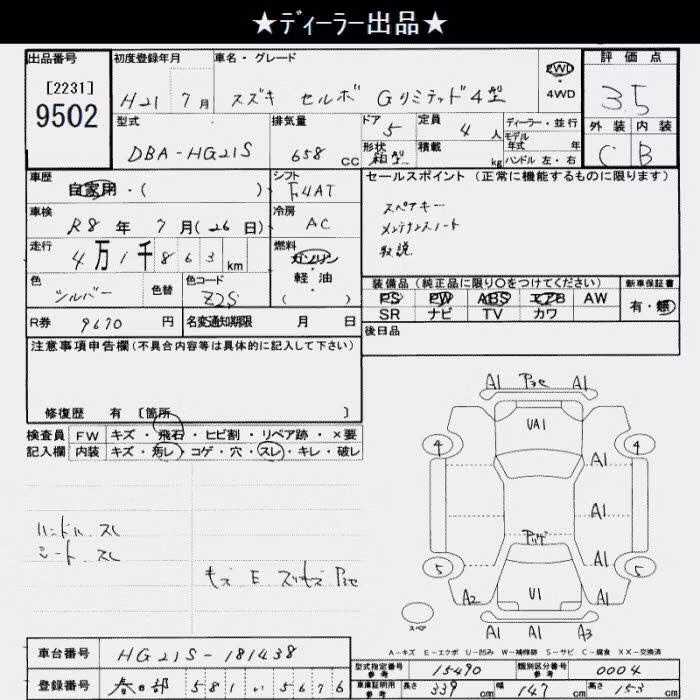 ★ディーラー出品★
出品番号
[2231]
9502
初度登録年月
H21 7月
車名・グレード
スズキ セルボ Gリミテッド4型
2WD
4WD
評価点
3.5
外装 内装
C B
型式
DBA-HG21S
排気量
658 cc
ドア 5
形状 箱型
定員 4 人
積載 kg
ディーラー・並行
モデル年式 年
ハンドル 左・右
車歴
自家用・( )
シフト
F4AT
車検
R8年 7月(26日)
冷房
AC
走行
4万1千863 km
燃料
ガソリン
軽油
( )
色
シルバー
色替
色コード
Z2S
R券 9670 円
名変通知期限 月 日
セールスポイント (正常に機能するものに限ります)
スペアキー
メンテナンスノート
取説
装備品 (純正品に限り○をつけてください)
新車保証書
PS PW ABS エアB AW
SR ナビ TV カワ
有・無
後日品
注意事項申告欄(不具合内容等は具体的に記入して下さい)
修復歴 有 [箇所 ]
検査員 FW キズ・飛石・ヒビ割・リペア跡・×要
記入欄 内装 キズ・汚レ・コゲ・穴・スレ・キレ・破レ
ハンドル スレ
シート スレ
A1 A1
UA1
4 4
A1
A1
A1
5 5
A2 U1 A1
A1 A1 A3
スペア
A-キズ E-エクボ U-凹み W-補修跡 S-サビ C-腐食 XX-交換済
車台番号 HG21S-181438
登録番号 春日部 581 い 5676
型式指定番号 参考 15490
類別区分番号 参考 0004
車庫証明用 参考 長さ 339 cm 幅 147 cm 高さ 153 cm